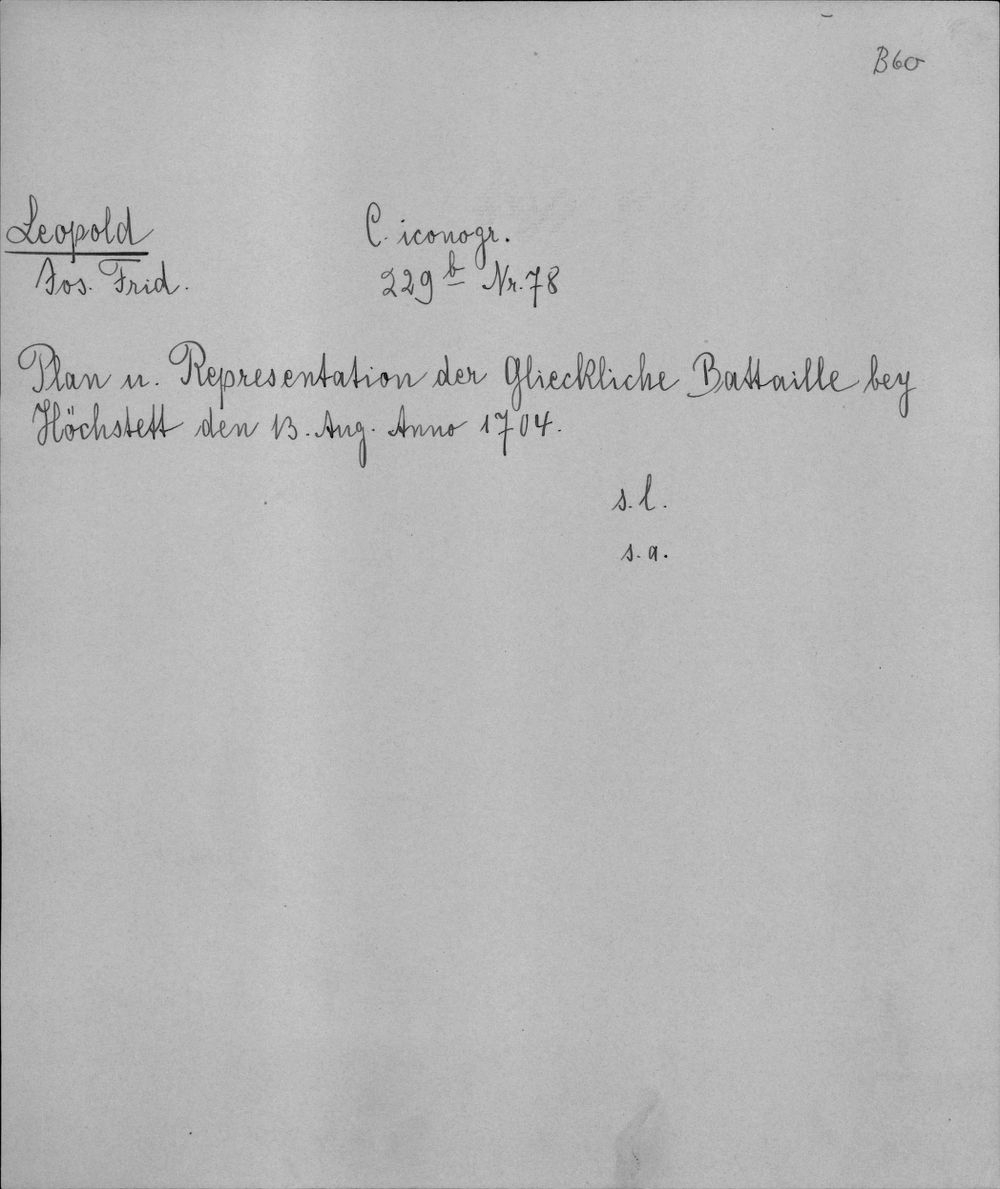 B60
Leopold
Jos. Frid.
C. iconogr.
229 b Nr. 78
Plan u. Representation der Glieckliche Battaille bey
Höchstett den 13. Aug. Anno 1704.
s. l.
s. a.